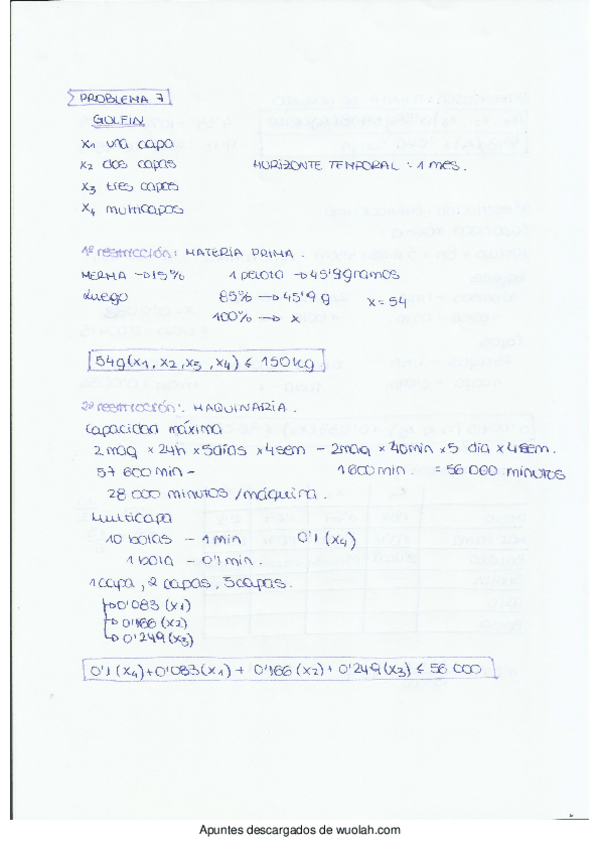 PROBLEMA 7
GOLFIN
x1 una capa
x2 dos capas HORIZONTE TEMPORAL = 1 mes.
x3 tres capas
x4 multicapas
1ª restricción: MATERIA PRIMA.
MERMA → 15% 1 pelota → 45'9 gramos
Luego 85% → 45'9 g x = 54
100% → x
54g (x1, x2, x3, x4) ≤ 150 kg
2ª restricción: MAQUINARIA.
Capacidad máxima
2 maq x 24h x 5días x 4sem - 2maq x 40min x 5 dia x 4sem.
57 600 min - 1600 min. = 56 000 minutos
28 000 minutos / máquina.
Multicapa
10 bolas - 1 min 0'1 (x4)
1 bola - 0'1 min.
1 capa, 2 capas, 3 capas.
→ 0'083 (x1)
→ 0'166 (x2)
→ 0'249 (x3)
0'1 (x4) + 0'083 (x1) + 0'166 (x2) + 0'249 (x3) ≤ 56 000
Apuntes descargados de wuolah.com